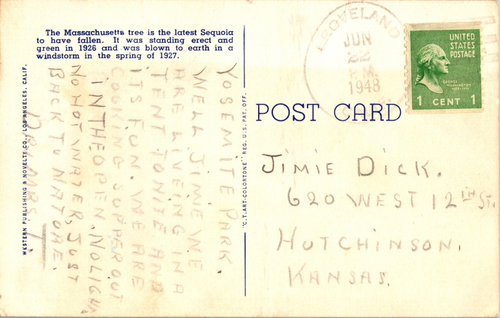 The Massachusetts tree is the latest Sequoia
to have fallen. It was standing erect and
green in 1926 and was blown to earth in a
windstorm in the spring of 1927.
YOSEMITE PARK.
WELL JIMIE WE
ARE LIVEING IN A
TENT TONITE AND
ITS FUN. WE ARE
COOKING SUPPER OUT
IN THE OPEN. NO LIGHT
NO HOT WATER, JUST
BACK TO NATURE.
WESTERN PUBLISHING & NOVELTY CO., LOS ANGELES, CALIF.
"C.T. ART-COLORTONE" REG. U.S. PAT. OFF.
GROVELAND
JUN
22
P.M.
1948
UNITED
STATES
POSTAGE
GEORGE
WASHINGTON
1 CENT 1
POST CARD
JIMIE DICK.
620 WEST 12TH ST.
HUTCHINSON.
KANSAS.